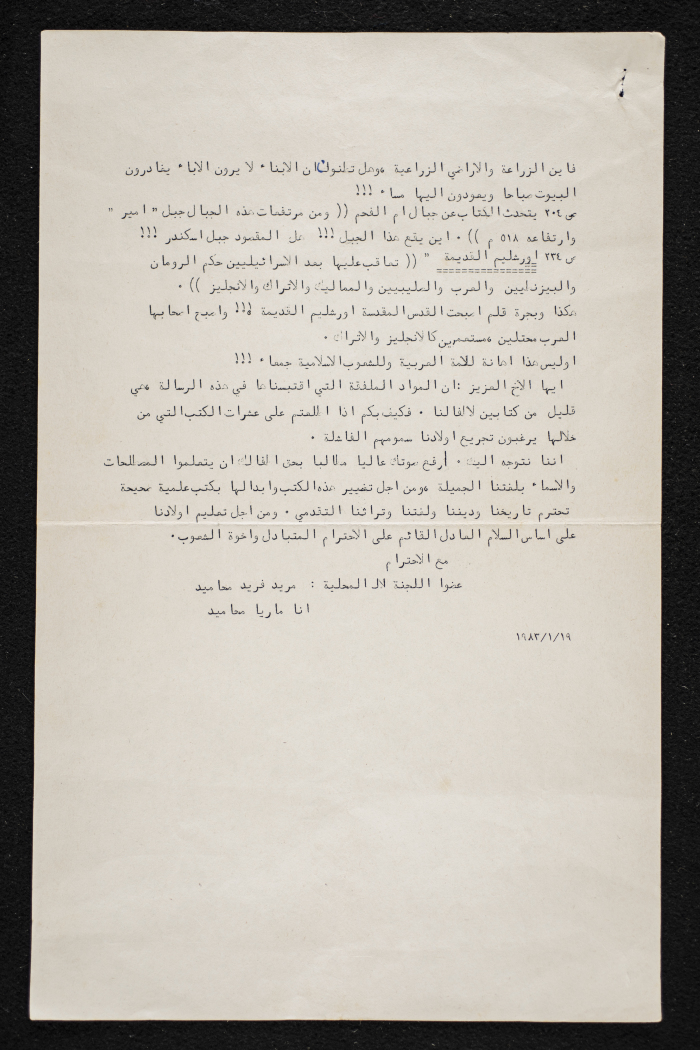 فاين الزراعة والاراضي الزراعية ،وهل تظنوان ان الابناء لا يرون الاباء يغادرون
البيوت صباحا ويعودون اليها مساء !!!
ص ٢٠٤ يتحدث الكتاب عن جبال ام الفحم (( ومن مرتفعات هذه الجبال جبل " امير "
وارتفاعه ٥١٨ م )) . اين يقع هذا الجبل !!! هل المقصود جبل اسكندر !!!
ص ٢٣٤ اورشليم القديمة " (( تعاقب عليها بعد الاسرائيليين حكم الرومان
والبيزنطيين والعرب والصليبيين والمماليك والاتراك والانجليز )) .
هكذا وبجرة قلم اصبحت القدس المقدسة اورشليم القديمة !!! واصبح اصحابها
العرب محتلين ،مستعمرين كالانجليز والاتراك .
اوليس هذا اهانة للامة العربية وللشعوب الاسلامية جمعاء . !!!
ايها الاخ العزيز :ان المواد الملفقة التي اقتبسناها في هذه الرسالة ،هي
قليل من كتابين لاطفالنا . فكيف بكم اذا اطلعتم على عشرات الكتب التي من
خلالها يرغبون تجريع اولادنا سمومهم الفاشلة .
اننا نتوجه اليك . ارفع صوتك عاليا مطالبا بحق اطفالك ان يتعلموا المصطلحات
والاسماء بلغتنا الجميلة ،ومن اجل تغيير هذه الكتب وابدالها بكتب علمية صحيحة
تحترم تاريخنا وديننا ولغتنا وتراثنا التقدمي . ومن اجل تعليم اولادنا
على اساس السلام العادل القائم على الاحترام المتبادل واخوة الشعوب.
مع الاحترام
عضوا اللجنة المحلية : مريد فريد محاميد
انا ماريا محاميد
١٩٨٣/١/١٩